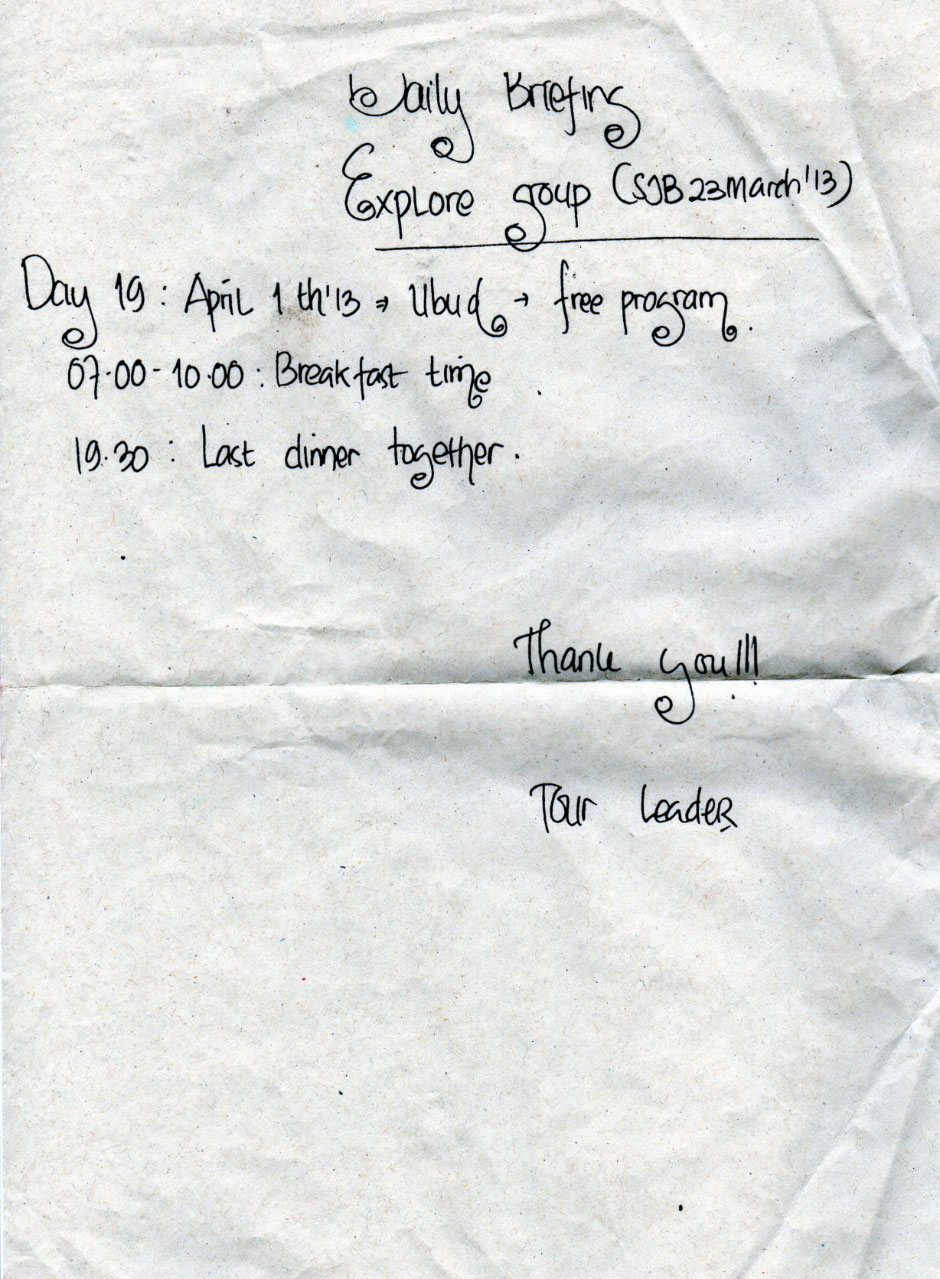 Daily Briefing
Explore goup (SJB 23 March '13)
Day 19 : April 1 th '13 ⇒ Ubud → free program.
07.00 - 10.00 : Breakfast time
19.30 : Last dinner together.
Thank you!!!
Tour Leader